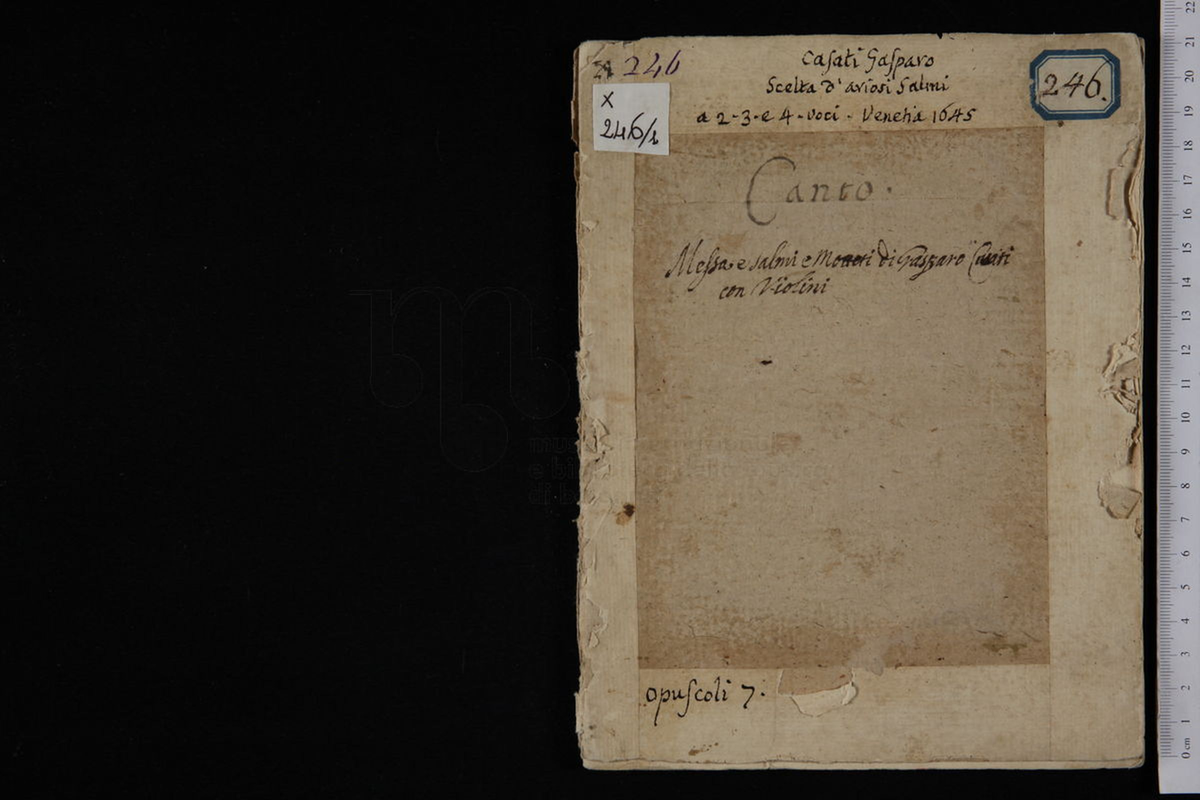 246
X
246/1
Casati Gasparo
Scelta d'ariosi Salmi
a 2-3-e 4-voci - Venetia 1645
246.
Canto.
Messa e salmi e Moteti di Gasparo
con Violini
opuscoli 7.
22
21
20
19
18
17
16
15
14
13
12
11
10
9
8
7
6
5
4
3
2
1
0 cm